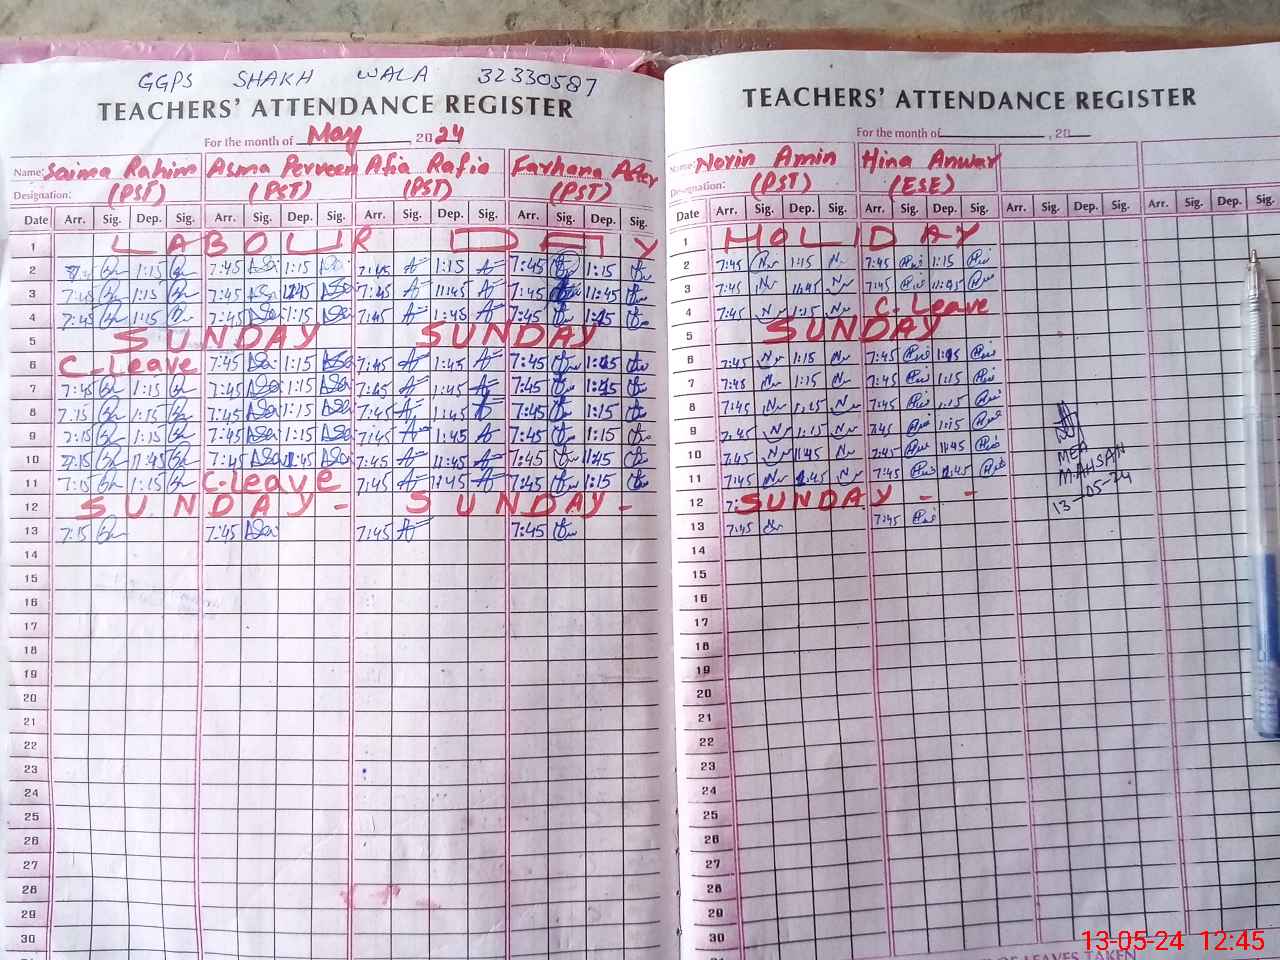 GGPS SHAKH WALA 32330587
TEACHERS' ATTENDANCE REGISTER
For the month of May, 2024
Name: Saima Rahim Asma Perveen Afia Rafia Farhana Aster
Designation: (PST) (PST) (PST) (PST)
Date Arr. Sig. Dep. Sig. Arr. Sig. Dep. Sig. Arr. Sig. Dep. Sig. Arr. Sig. Dep. Sig.
1 LABOUR DAY
2 1:15 7:45 1:15 7:45 1:15 7:45 1:15
3 7:45 1:15 7:45 11:45 7:45 11:45 7:45 11:45
4 7:45 1:15 7:45 1:15 7:45 1:45 7:45
5 SUNDAY SUNDAY
6 C-Leave 7:45 1:15 7:45 1:45 7:45
7 7:45 1:15 7:45 1:15 7:45 1:45 7:45
8 7:15 1:15 7:45 1:15 7:45 1:45 7:45 1:15
9 7:15 1:15 7:45 1:15 7:45 1:45 7:45 1:15
10 7:15 11:45 7:45 7:45 11:45 7:45 11:45
11 7:15 1:15 C-Leave 7:45 7:45 1:15
12 SUNDAY - SUNDAY -
13 7:15 7:45 7:45 7:45
14
15
16
17
18
19
20
21
22
23
24
25
26
27
28
29
30
TEACHERS' ATTENDANCE REGISTER
For the month of , 20
Name: Norin Amin Hina Anwar
Designation: (PST) (ESE)
Date Arr. Sig. Dep. Sig. Arr. Sig. Dep. Sig. Arr. Sig. Dep. Sig. Arr. Sig. Dep. Sig.
1 HOLIDAY
2 7:45 1:15 7:45 1:15
3 7:45 11:45 7:45 11:45
4 7:45 1:15 C-Leave
5 SUNDAY
6 7:45 1:15 7:45
7 7:45 1:15 7:45 1:15
8 7:45 1:15 7:45 1:15
9 7:45 1:15 7:45 1:15
10 7:45 11:45 7:45 11:45
11 7:45 7:45
12 SUNDAY - -
13 7:45 7:45
14
15
16
17
18
19
20
21
22
23
24
25
26
27
28
29
30
MEA
MAHSAN
13-05-24
OF LEAVES TAKEN
13-05-24 12:45